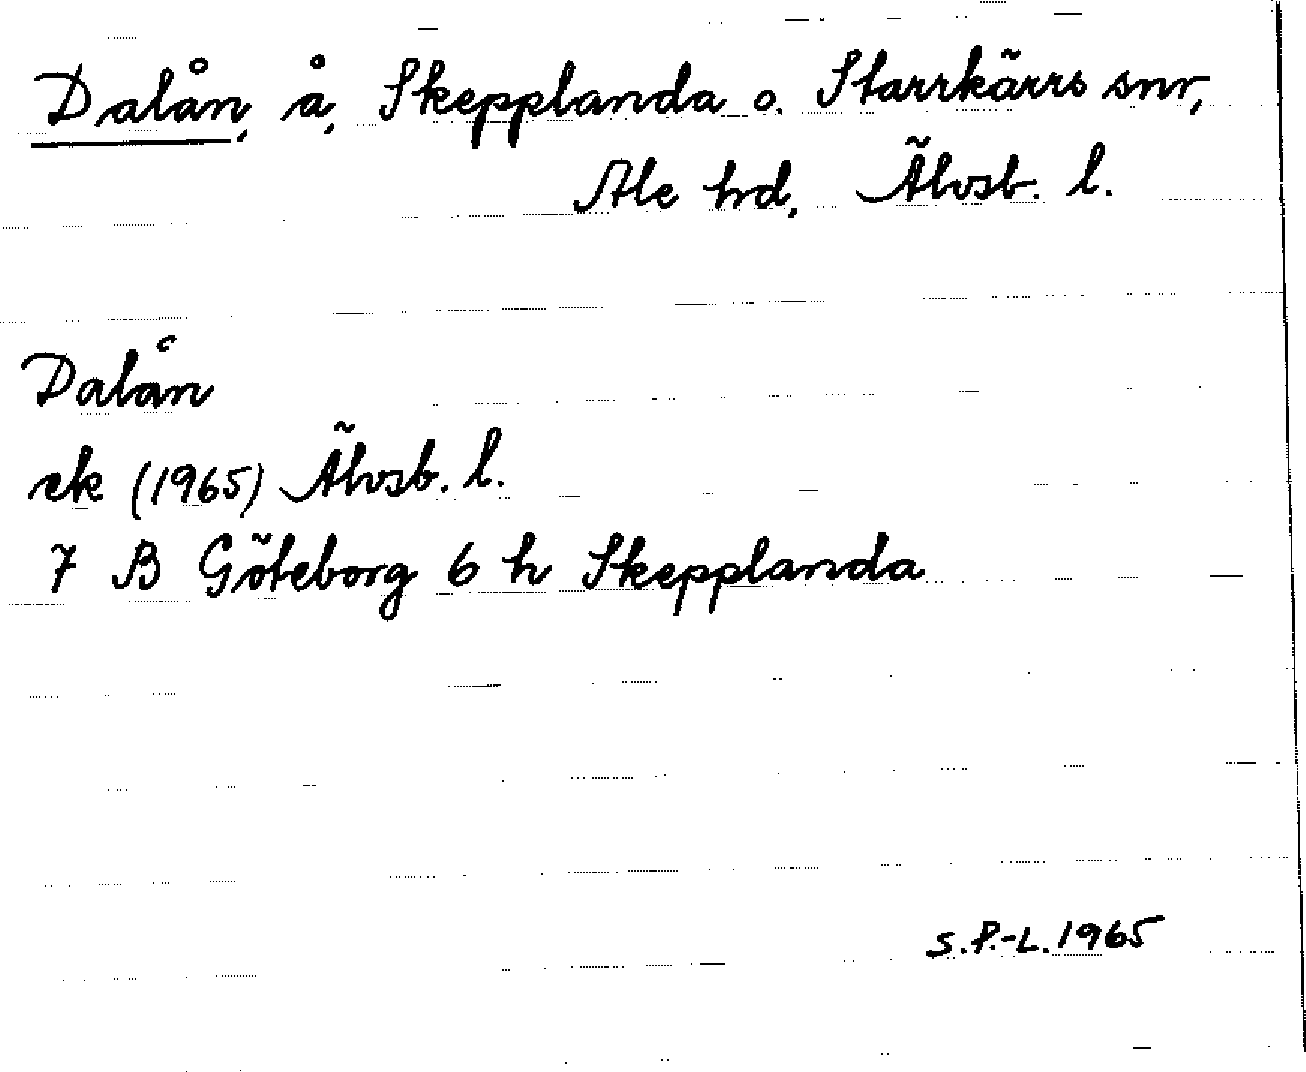 Dalån, å, Skepplanda o. Starrkärrs snr,
Ale hd, Älvsb. l.
Dalån
ek (1965) Älvsb. l.
7 B Göteborg 6 h Skepplanda
S.P.-L. 1965